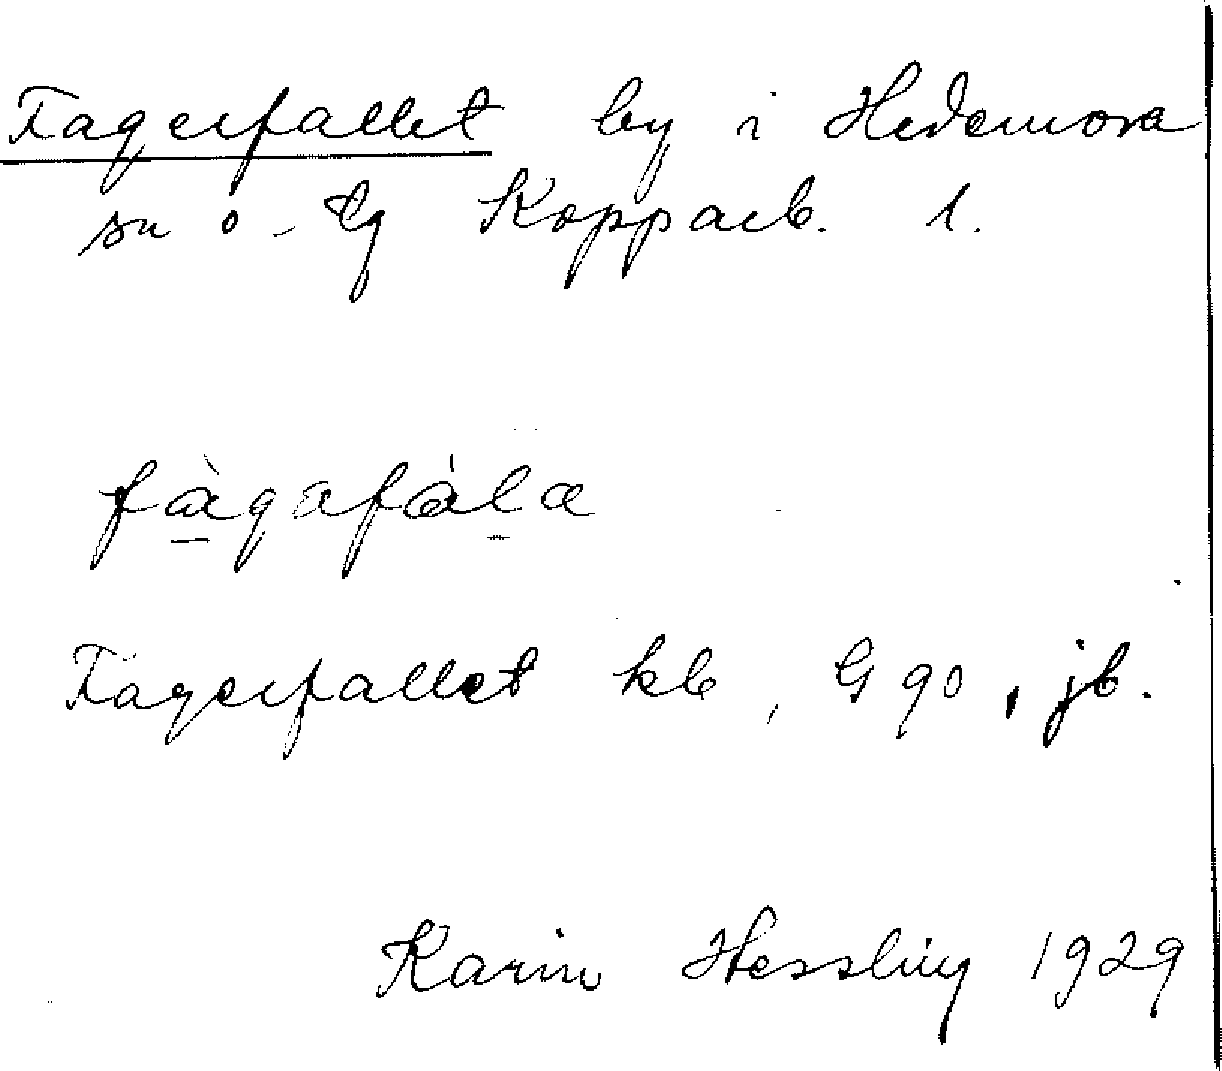 Fagerfallet by i Hedemora
sn o. tg Kopparb. l.
fàgafàla
Fagerfallet kb, G 90, jb.
Karin Hessling 1929